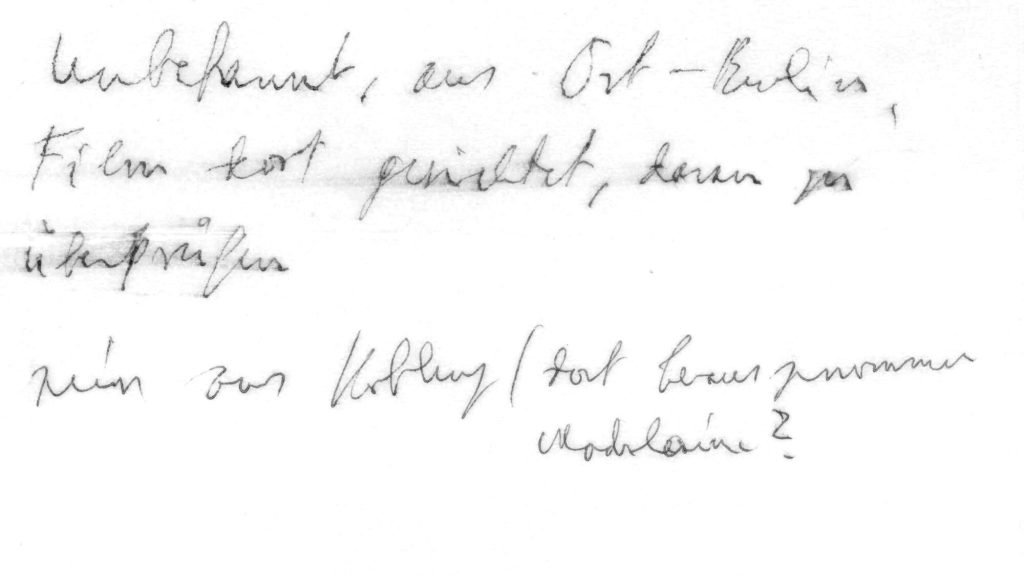 Unbekannt, aus Ost-Berlin,
Film dort gesichtet, daran zu
überprüfen
aus (dort herausgenommen
Madelaine?